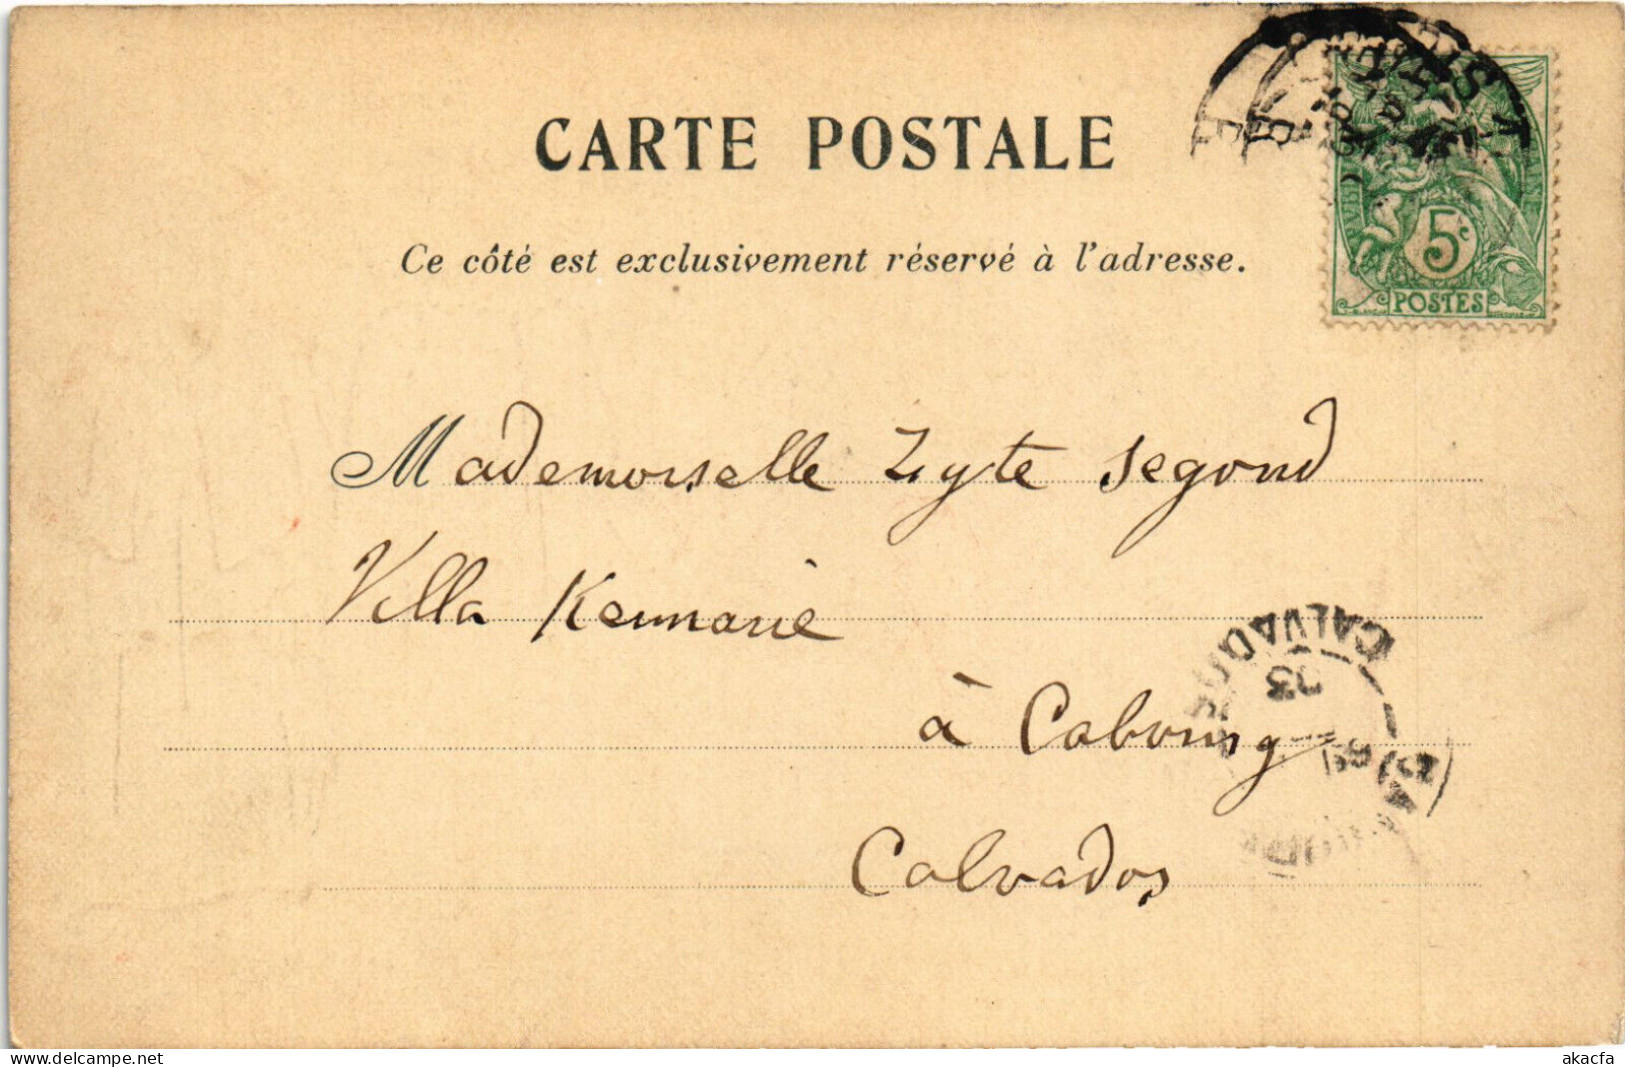 CARTE POSTALE
Ce côté est exclusivement réservé à l'adresse.
5c
POSTES
Mademoiselle Zyte Segond
Villa Kermarie
à Cabourg
Calvados
CALVADOS
03
www.delcampe.net
akacfa